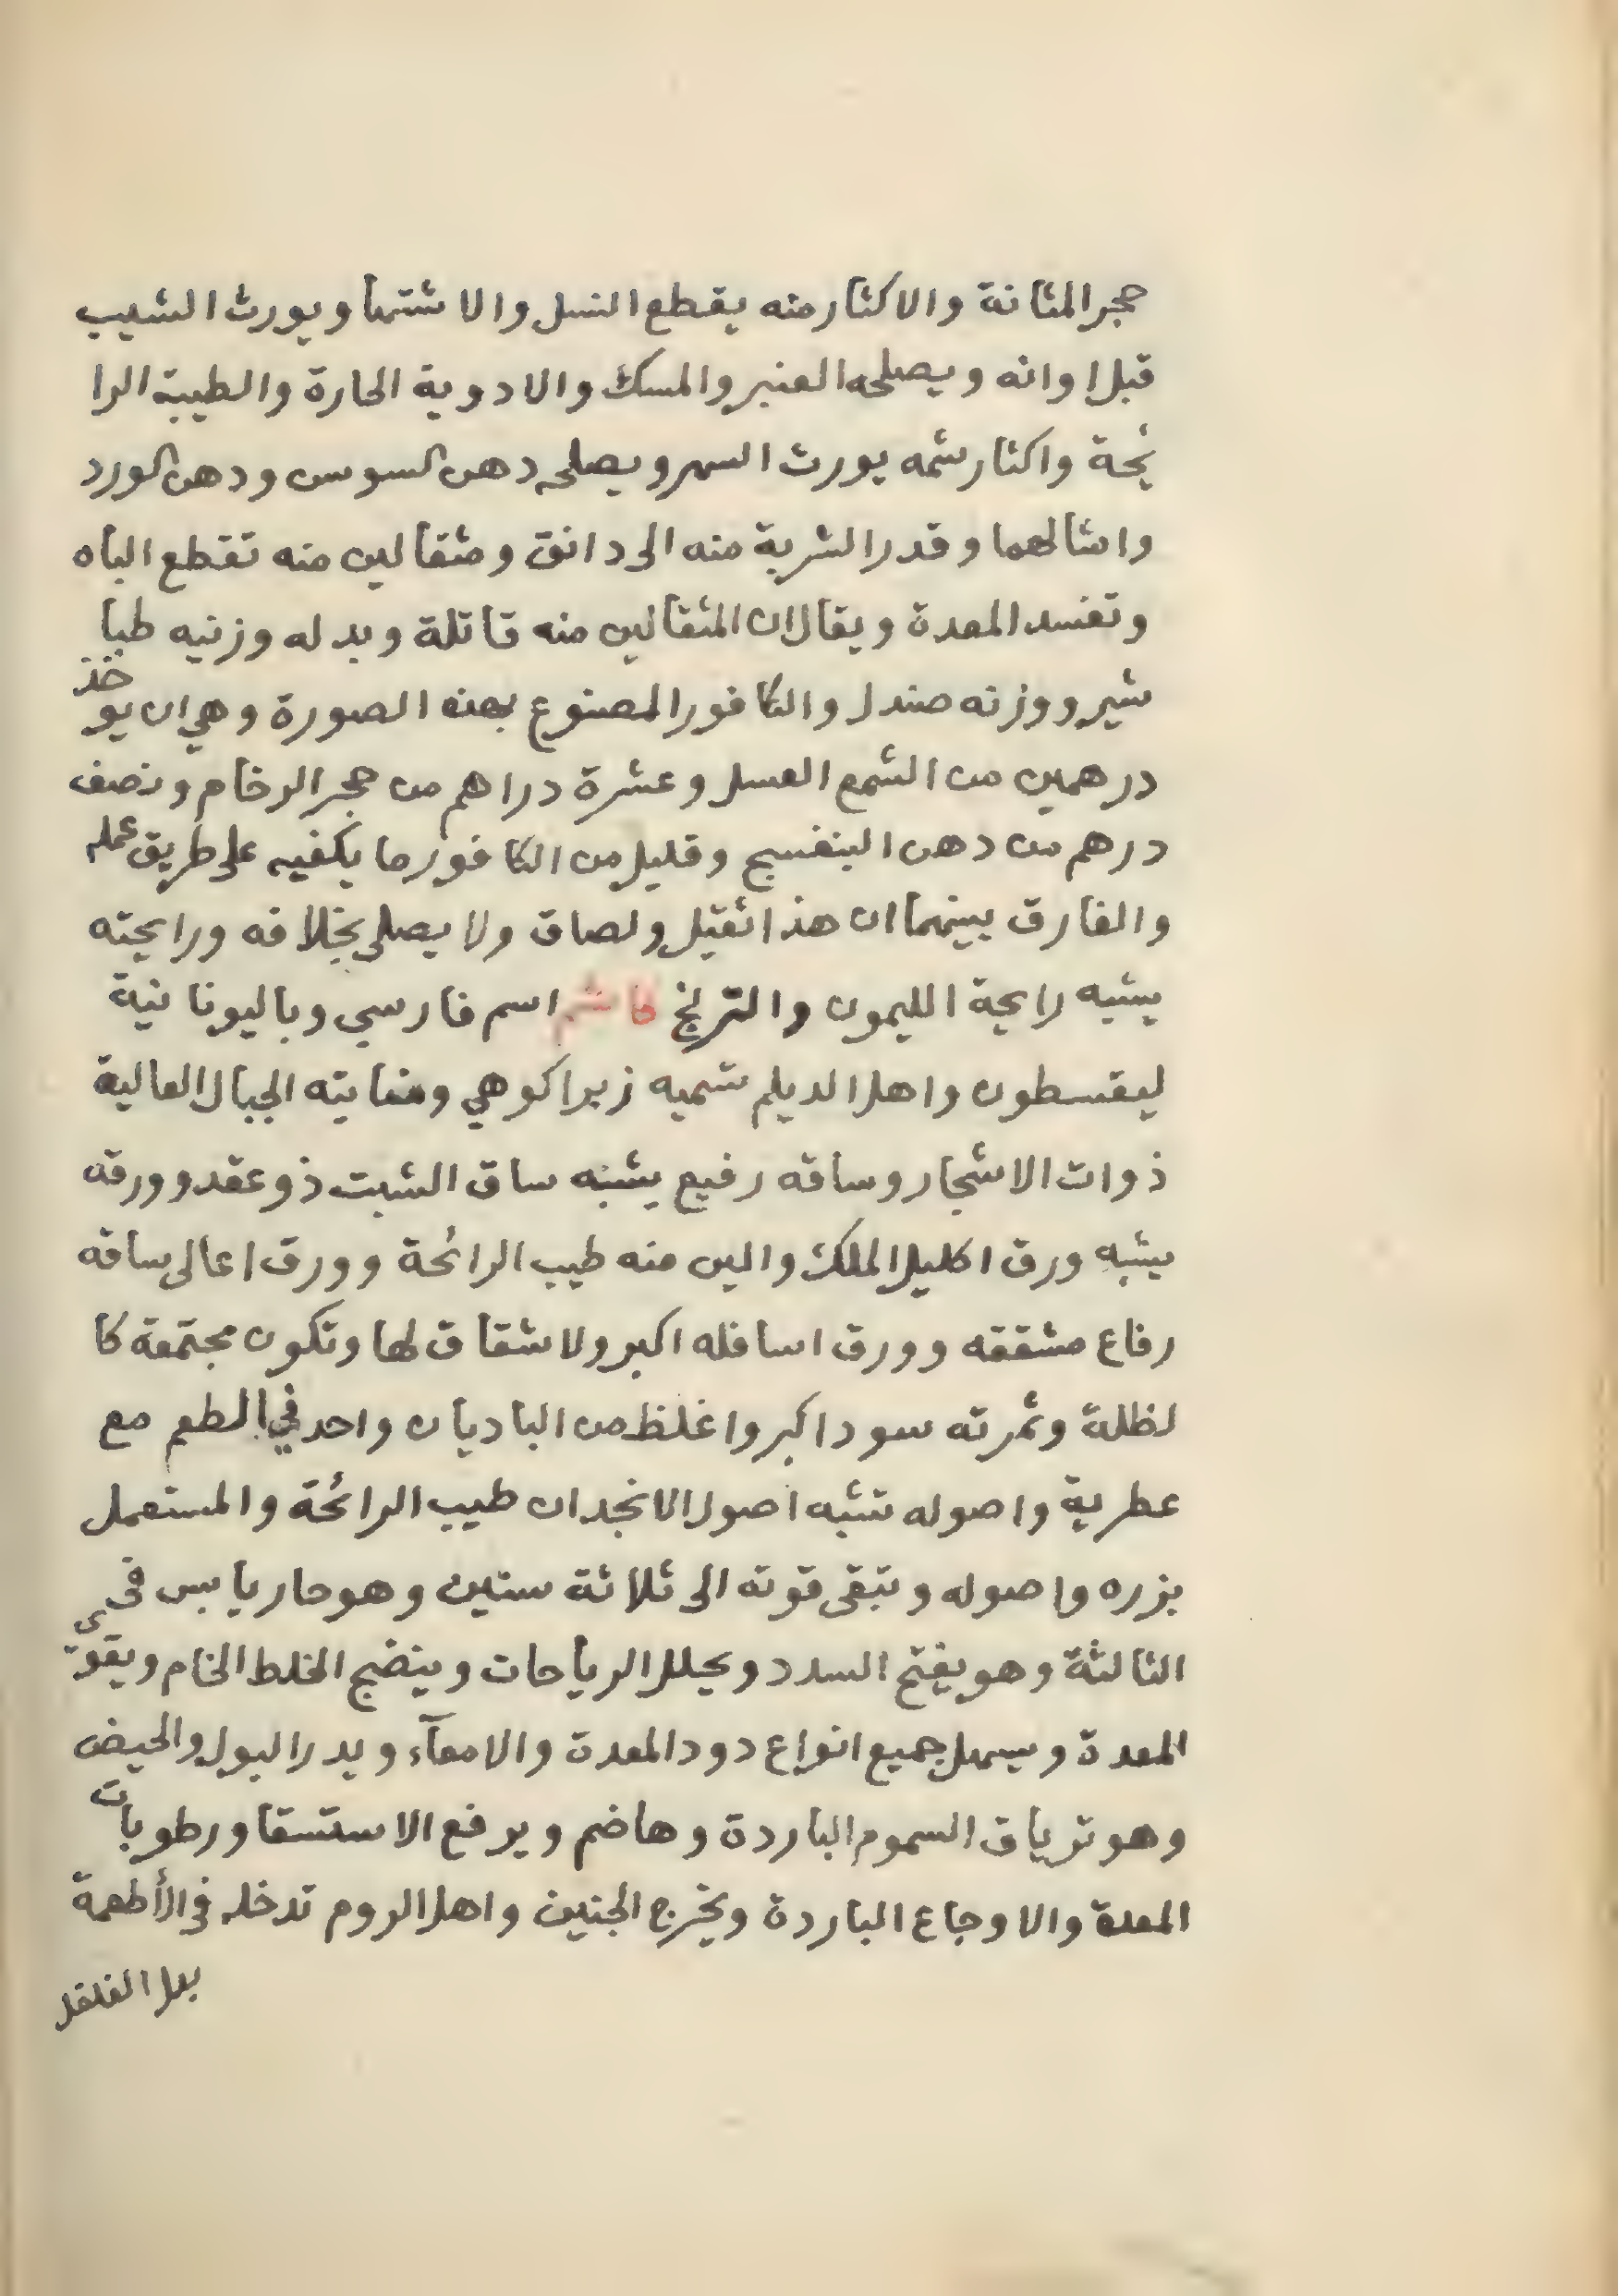 حجر المثانة والاكثار منه يقطع النسل والاشتها ويورث الشيب
قبل اوانه ويصلحه العنبر والمسك والادوية الحارة والطيبة الرا
ئحة واكثار شمه يورث السهر ويصلحه دهن السوسن ودهن الورد
وامثالهما وقدر الشربة منه الى دانق ومثقالين منه تقطع الباه
وتفسد المعدة ويقال ان المثقالين منه قاتلة وبدله وزنيه طبا
شير ووزنه صندل والكافور المصنوع بهذه الصورة وهي ان يوخذ
درهمين من الشمع العسل وعشرة دراهم من حجر الرخام ونصف
درهم من دهن البنفسج وقليل من الكافور ما يكفيه على طريق عمله
والفارق بينهما ان هذا ثقيل ولصاق ولا يصلى بخلافه ورايحته
يشبه رايحة الليمون والترنج كاشم اسم فارسي وباليونانية
ليقسطون واهل الديلم تسميه زبراكوهي ومنابته الجبال العالية
ذوات الاشجار وساقه رفيع يشبه ساق الشبت ذو عقد وورقه
يشبه ورق اكليل الملك والين منه طيب الرائحة وورق اعالى ساقه
رفاع مشققه وورق اسافله اكبر ولا شقاق لها وتكون مجتمعة كا
لظلة وثمرته سود اكبر واغلظ من الباديان واحد في الطعم مع
عطرية واصوله تشبه اصول الانجدان طيب الرائحة والمستعمل
بزره واصوله وتبقى قوته الى ثلاثة سنين وهو حار يابس فى
الثالثة وهو يفتح السدد ويحلل الرياحات وينضج الخلط الخام ويقوّى
المعدة ويسهل جميع انواع دود المعدة والامعآء ويدر البول والحيض
وهو ترياق السموم الباردة وهاضم ويرفع الاستسقا ورطوبات
المعدة والاوجاع الباردة ويخرج الجنين واهل الروم تدخله في الأطعمة
بدل الفلفل